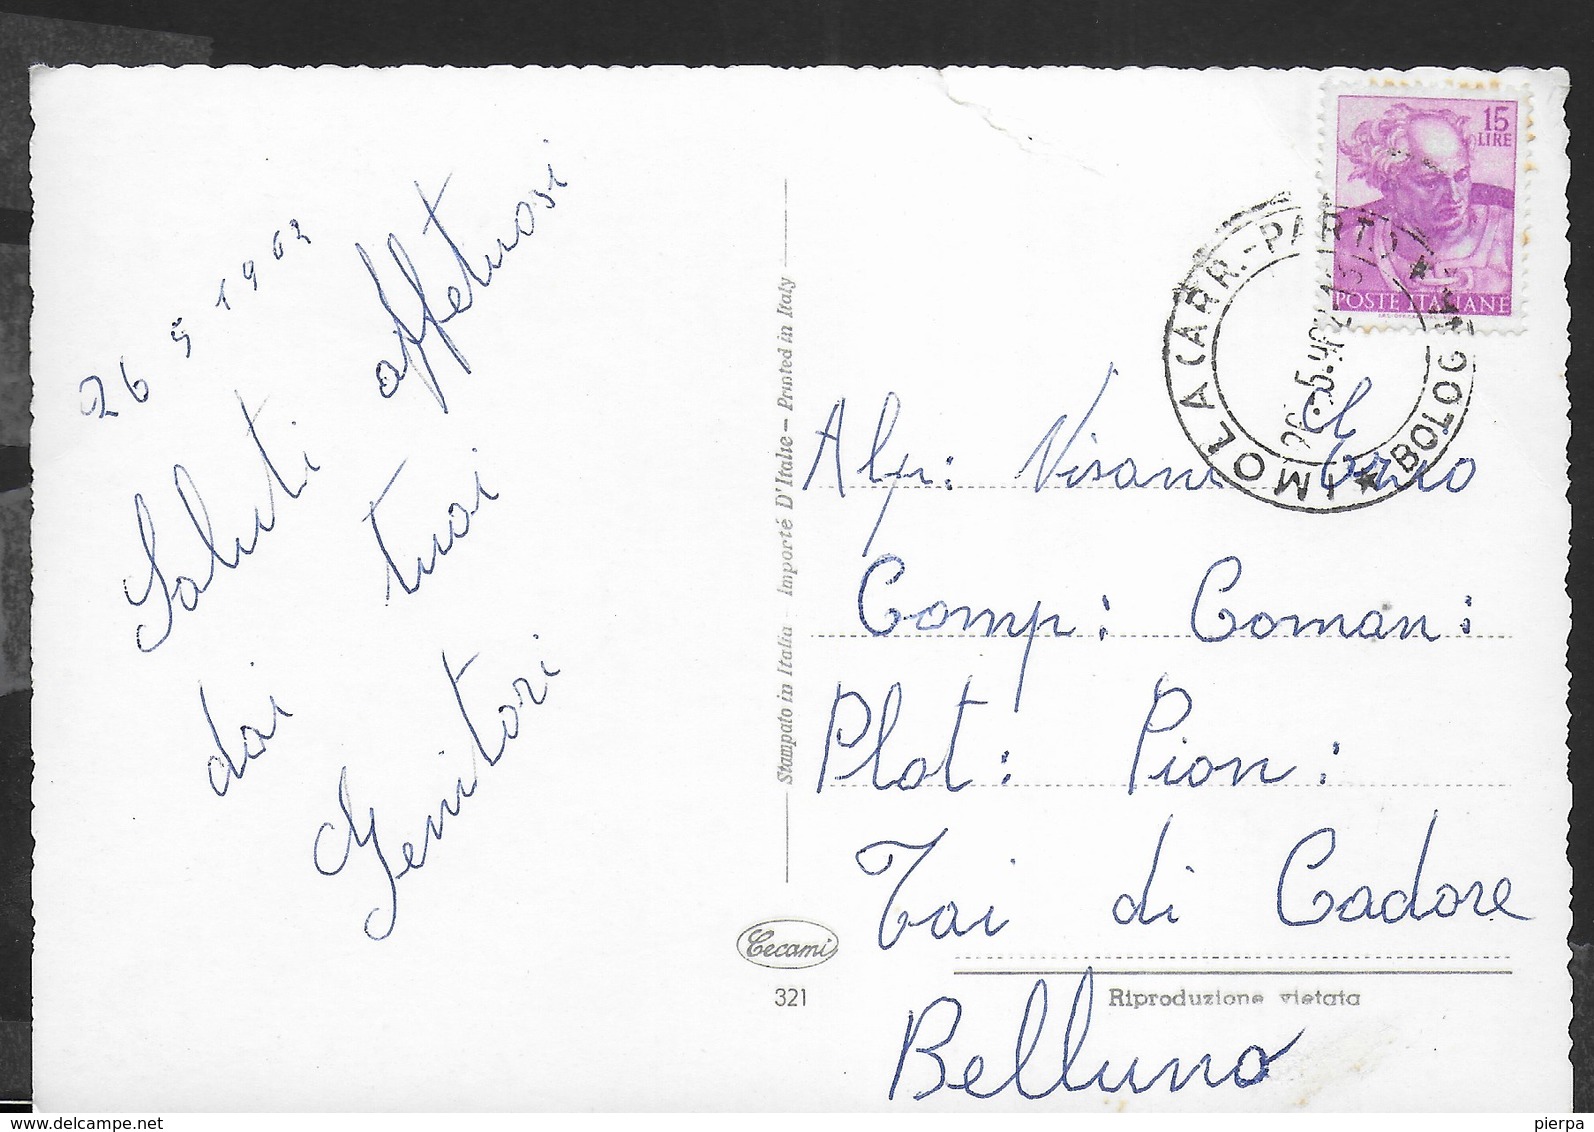 26 5 1963
Saluti affetuosi
dai tuoi
Genitori
Stampato in Italia - Importé D'Italie - Printed in Italy
Cecami
321
15
LIRE
POSTE ITALIANE
IMOLA (ARR.-PART.) ★ BOLOGNA ★
Alp: Visani
Comp: Coman:
Plot: Pion:
Tai di Cadore
Riproduzione vietata
Belluno
www.delcampe.net
pierpa